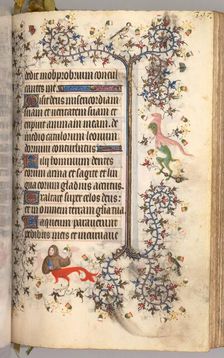 dedit in obprobrium concul
cantes me.
Misit deus misericordiam
suam et veritatem suam et
eripuit animam meam de
medio catulorum leonum
dormivi conturbatus
Filii hominum dentes
eorum arma et sagitte et lin
gua eorum gladius acutus.
Exaltare super celos deus
et in omnem terram gloria tua
Laqueum paraverunt
pedibus meis et incurvave